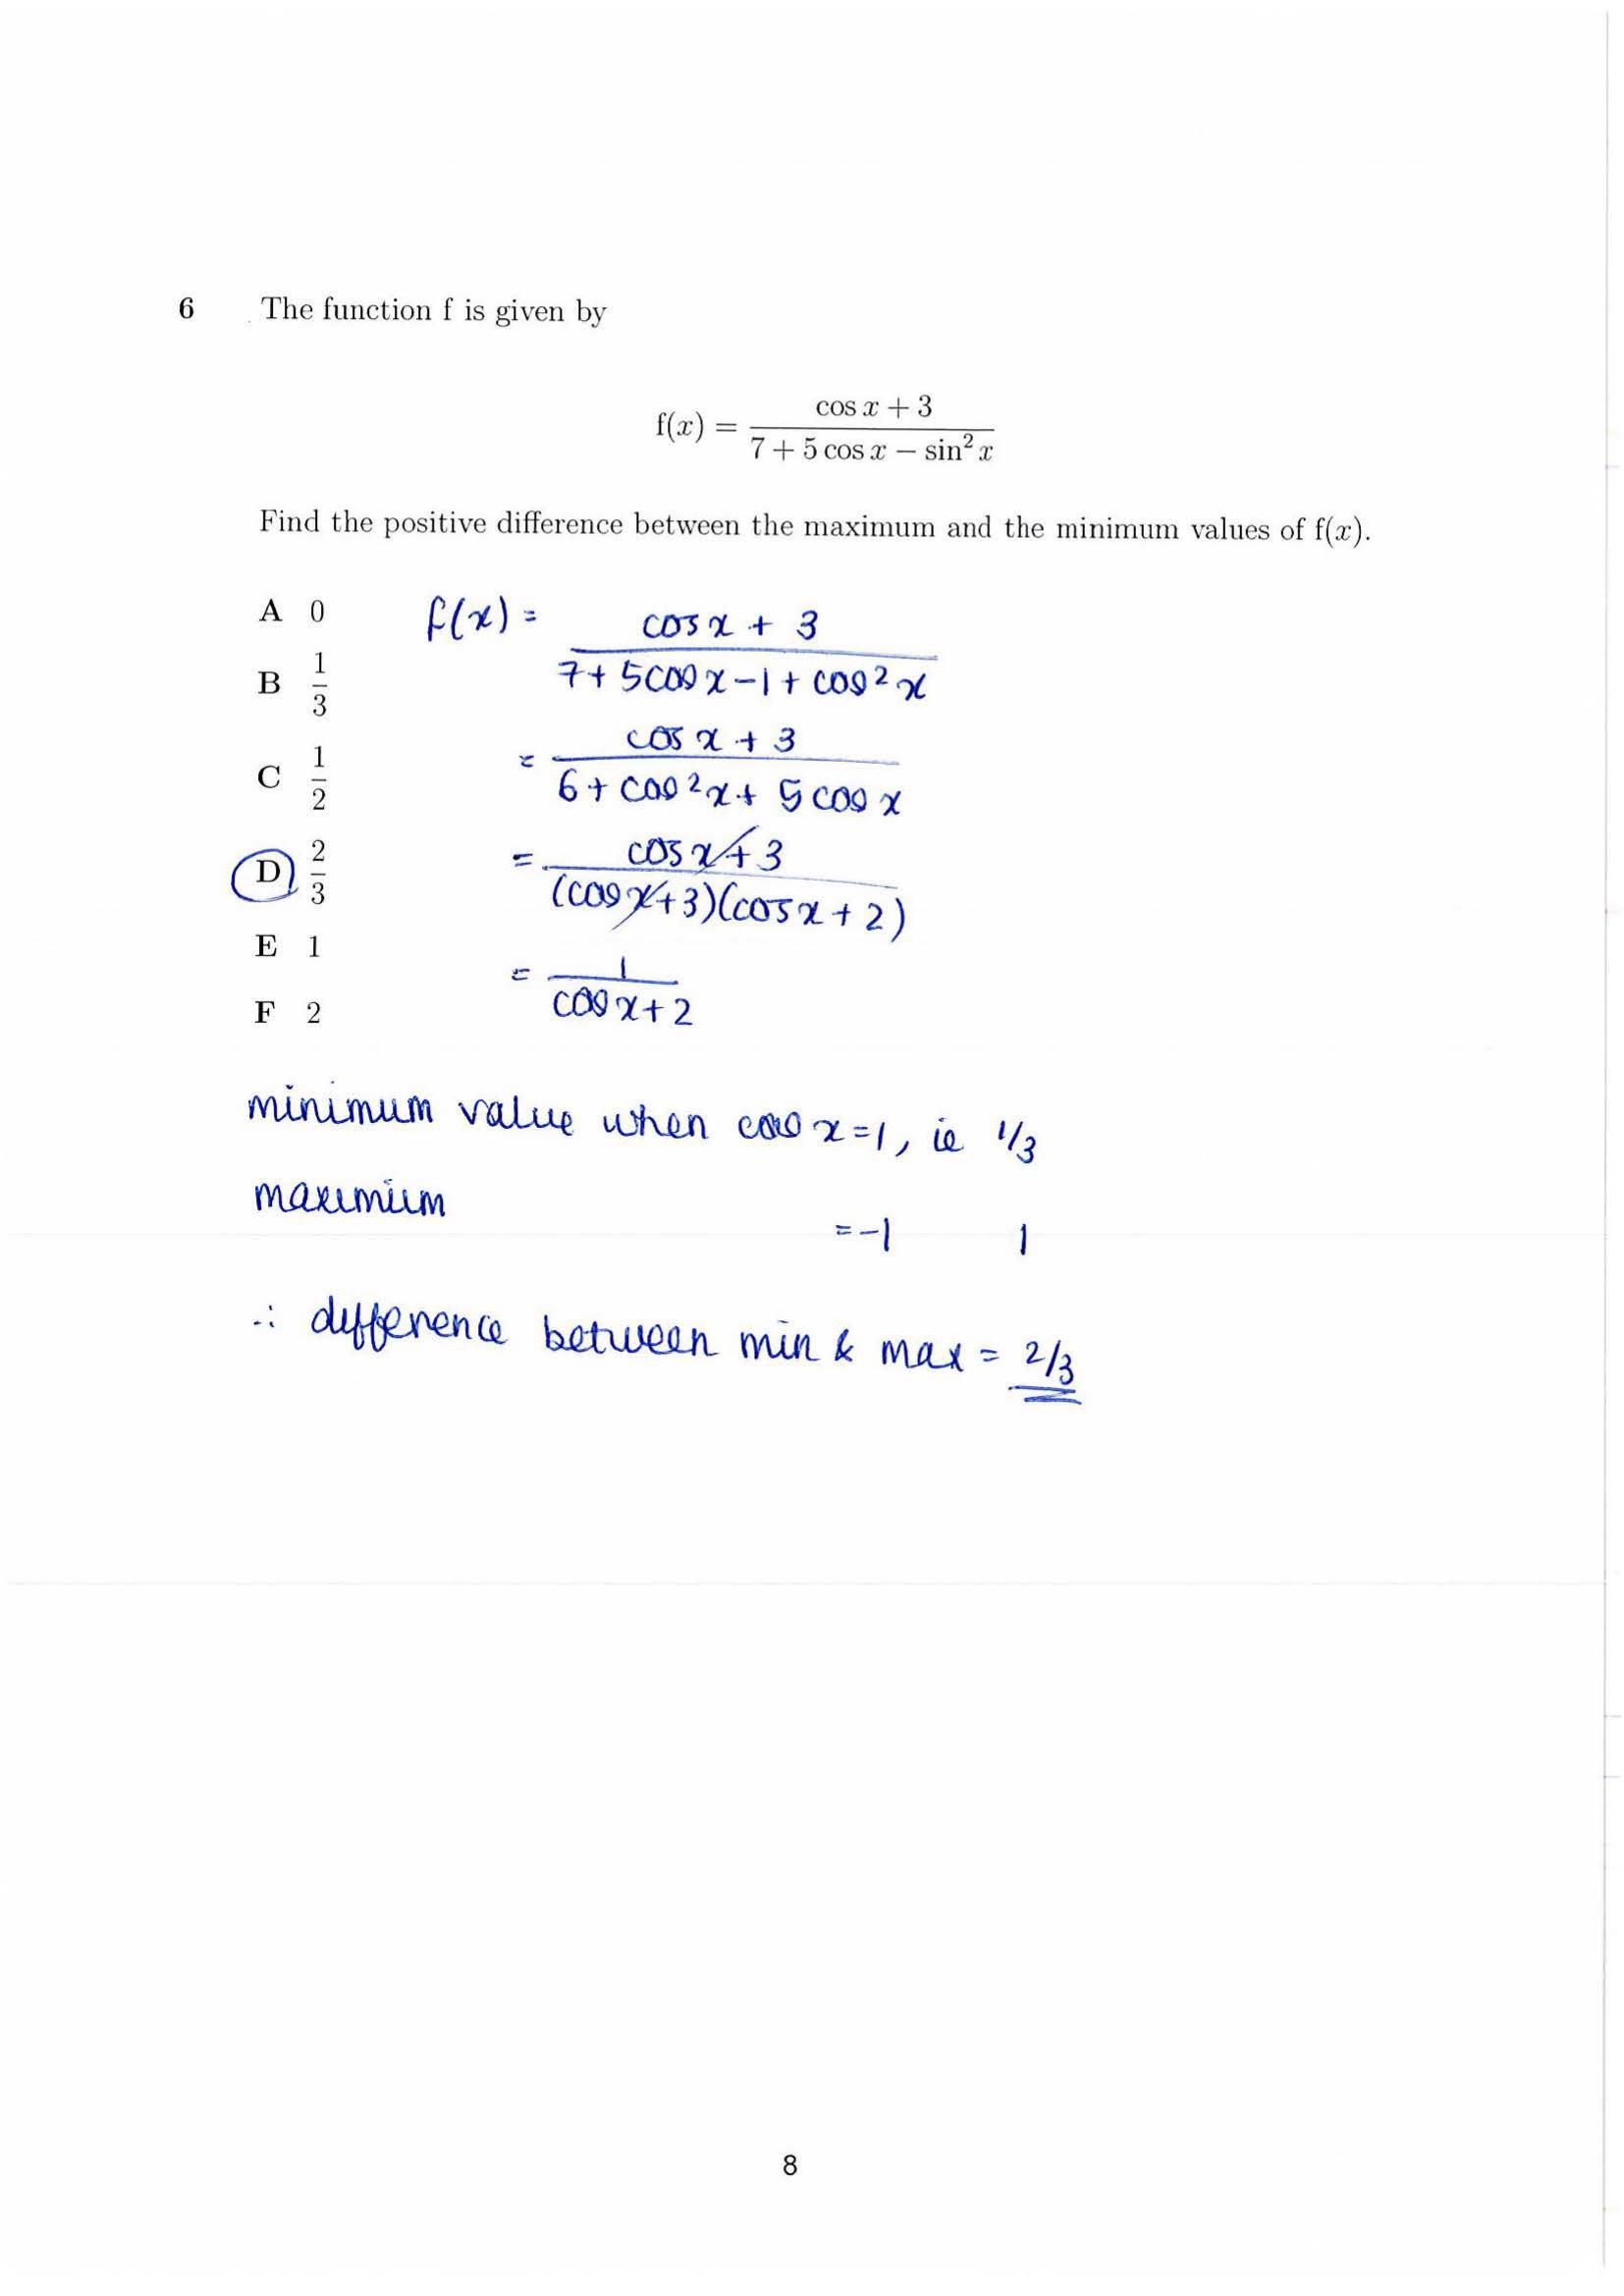 6 The function f is given by
f(x) = (cos x + 3)/(7 + 5 cos x − sin² x)
Find the positive difference between the maximum and the minimum values of f(x).
A 0
B 1/3
C 1/2
D 2/3
E 1
F 2
f(x) = (cos x + 3)/(7 + 5cos x − 1 + cos² x)
= (cos x + 3)/(6 + cos² x + 5 cos x)
= (cos x + 3)/((cos x + 3)(cos x + 2))
= 1/(cos x + 2)
minimum value when cos x = 1, ie 1/3
maximum = −1 1
∴ difference between min & max = 2/3
8